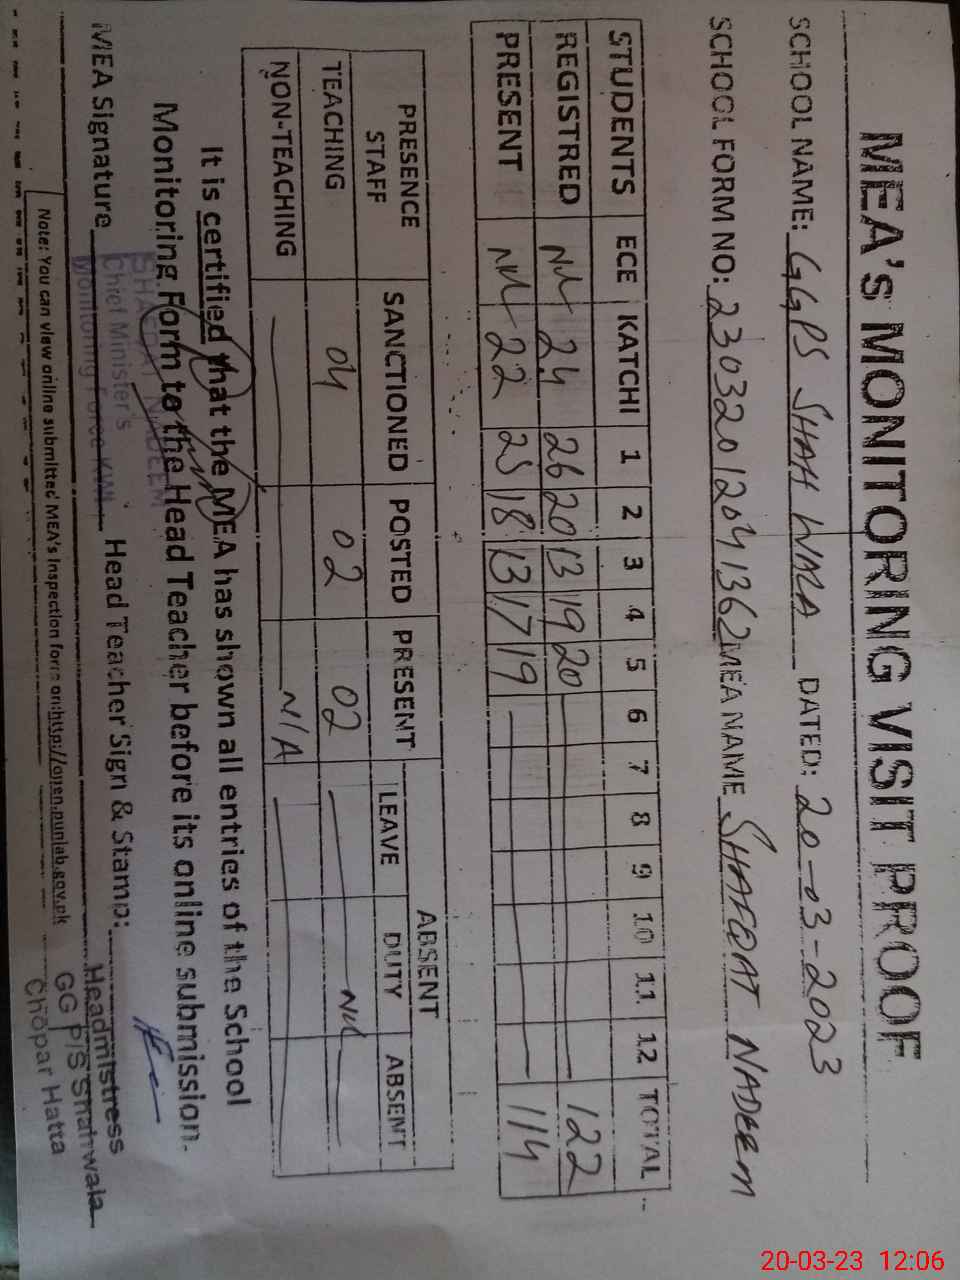 MEA's MONITORING VISIT PROOF
SCHOOL NAME: GGPS SHAH WALA DATED: 20-03-2023
SCHOOL FORM NO: 23032012041362 MEA NAME SHAFQAT NADEEM
STUDENTS ECE KATCHI 1 2 3 4 5 6 7 8 9 10 11 12 TOTAL
REGISTRED Nil 24 26 20 13 19 20 122
PRESENT Nil 22 25 18 13 17 19 114
PRESENCE STAFF SANCTIONED POSTED PRESENT ABSENT
LEAVE DUTY ABSENT
TEACHING 04 02 02 Nil
NON-TEACHING N/A
It is certified that the MEA has shown all entries of the School
Monitoring Form to the Head Teacher before its online submission.
SHAFQAT NADEEM
Chief Minister's
Monitoring Force KWL
MEA Signature Head Teacher Sign & Stamp:
Headmistress
GG P/S Shahwala
Chopar Hatta
Note: You can view online submitted MEA's Inspection form on:http://open.punjab.gov.pk
20-03-23 12:06